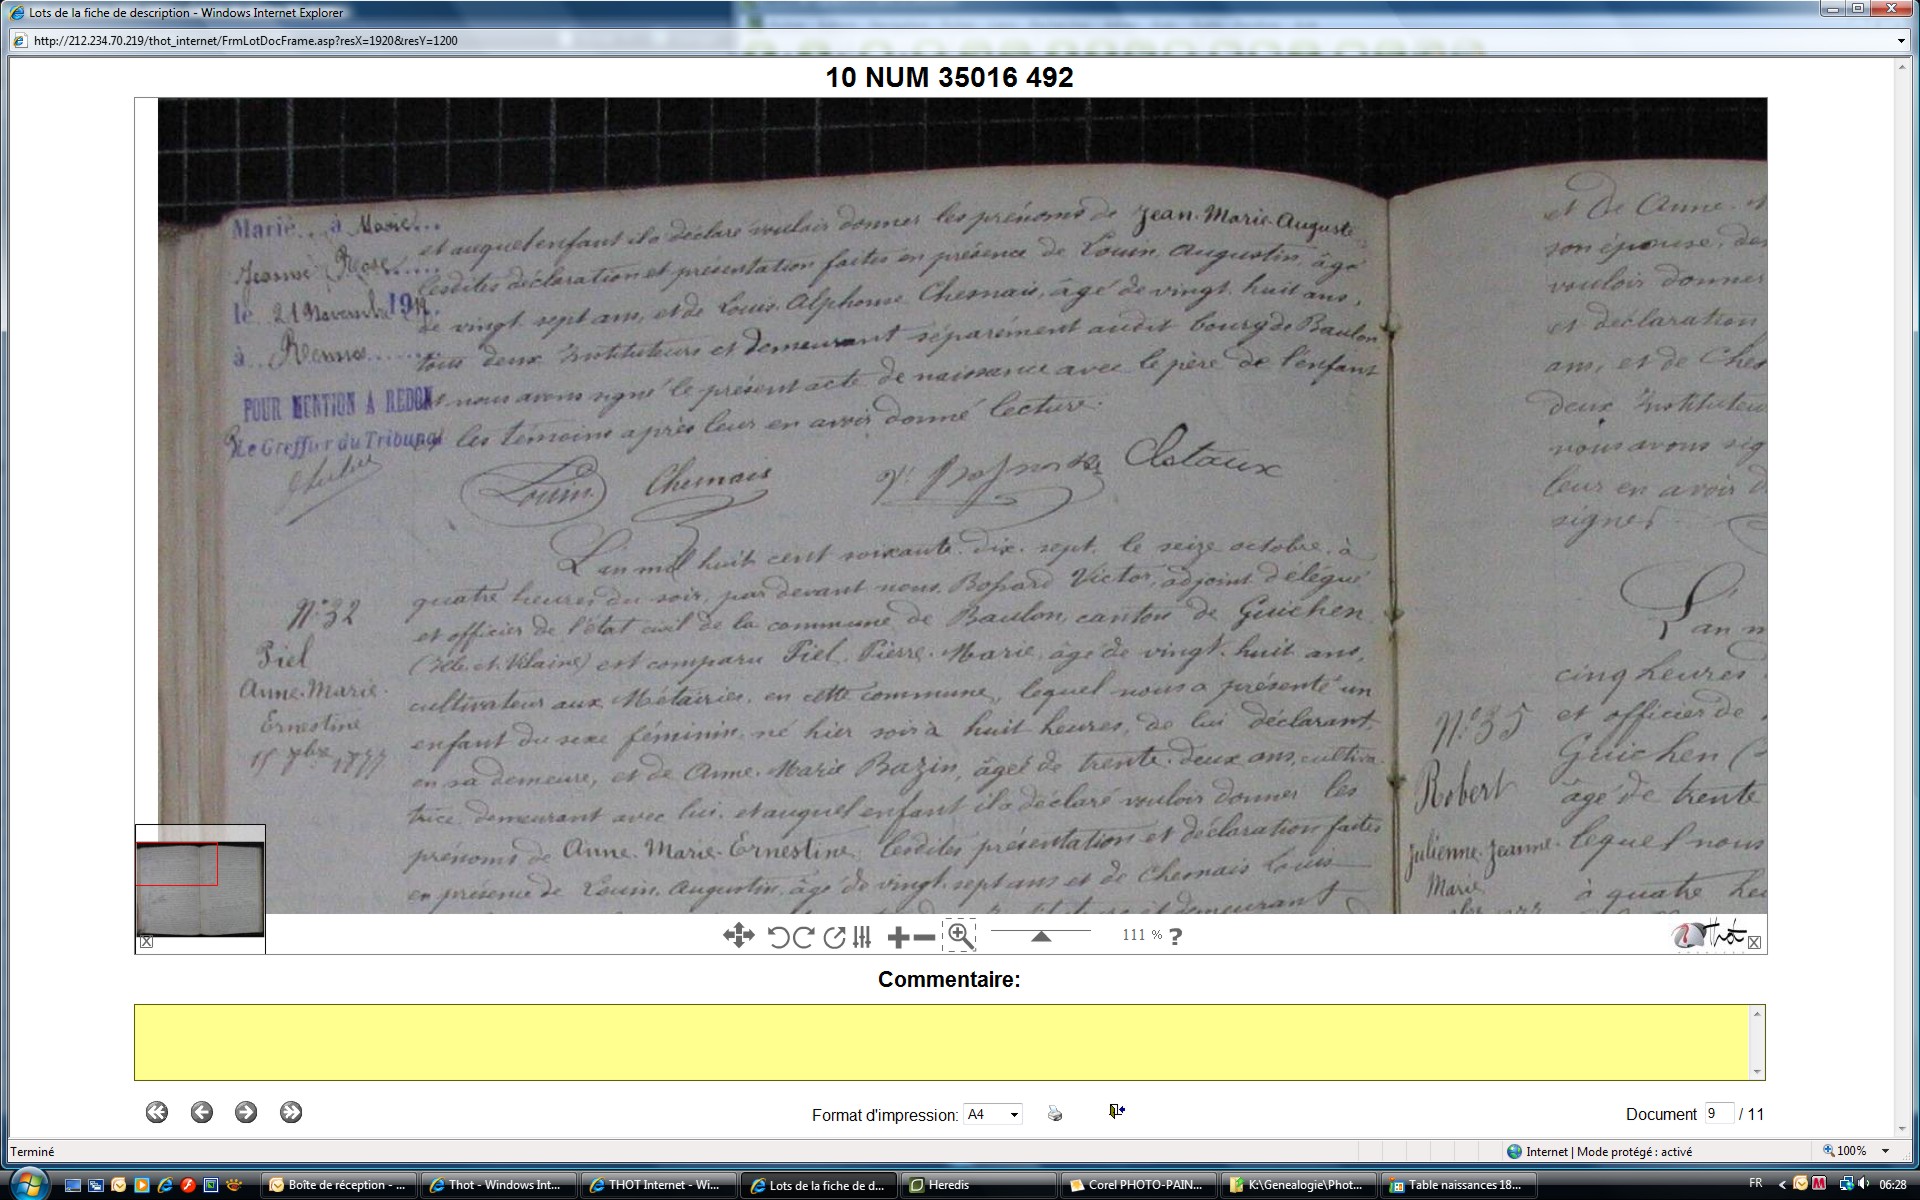 Lots de la fiche de description - Windows Internet Explorer
http://212.234.70.219/thot_internet/FrmLotDocFrame.asp?resX=1920&resY=1200
10 NUM 35016 492
Marié à Marie
Jeanne Rose
le 21 Novembre 19
à Rennes
POUR MENTION A REDON
Le Greffier du Tribunal
et auquel enfant il a déclaré vouloir donner les prénoms de Jean-Marie-Auguste
lesdites déclaration et présentation faites en présence de Louin, Augustin, âgé
de vingt-sept ans, et de Louis Alphonse Chesnais, âgé de vingt-huit ans,
tous deux Instituteurs et demeurant séparément audit bourg de Baulon
et nous avons signé le présent acte de naissance avec le père de l'enfant
et les témoins après leur en avoir donné lecture.
Louin Chesnais Clotaux
N° 32
Piel
Anne-Marie
Ernestine
15 1877
L'an mil huit cent soixante-dix-sept, le seize octobre, à
quatre heures du soir, par devant nous, Bossard Victor, adjoint délégué
et officier de l'état civil de la commune de Baulon, canton de Guichen
(Ille-et-Vilaine) est comparu Piel, Pierre-Marie, âgé de vingt-huit ans,
cultivateur aux Métairies, en cette commune, lequel nous a présenté un
enfant du sexe féminin, né hier soir à huit heures, de lui déclarant,
en sa demeure, et de Anne-Marie Bazin, âgée de trente-deux ans, cultiva-
trice, demeurant avec lui, et auquel enfant il a déclaré vouloir donner les
prénoms de Anne-Marie-Ernestine, lesdites présentation et déclaration faites
en présence de Louin, Augustin, âgé de vingt-sept ans et de Chesnais Louis
et demeurant
et de Anne
son épouse, de
vouloir donner
et déclaration
ans, et de Ches
deux Instituteu
nous avons sig
leur en avoir d
signer
N° 35
Robert
Julienne-Jeanne-
Marie
L'an m
cinq heures
et officier de
Guichen (
âgé de trente
lequel nous
à quatre heu
111 % ?
Thot
Commentaire:
Format d'impression: A4
Document 9 / 11
Terminé
Internet | Mode protégé : activé
100%
Boîte de réception - ...
Thot - Windows Int...
THOT Internet - Wi...
Lots de la fiche de d...
Heredis
Corel PHOTO-PAIN...
K:\Genealogie\Phot...
Table naissances 18...
FR
06:28